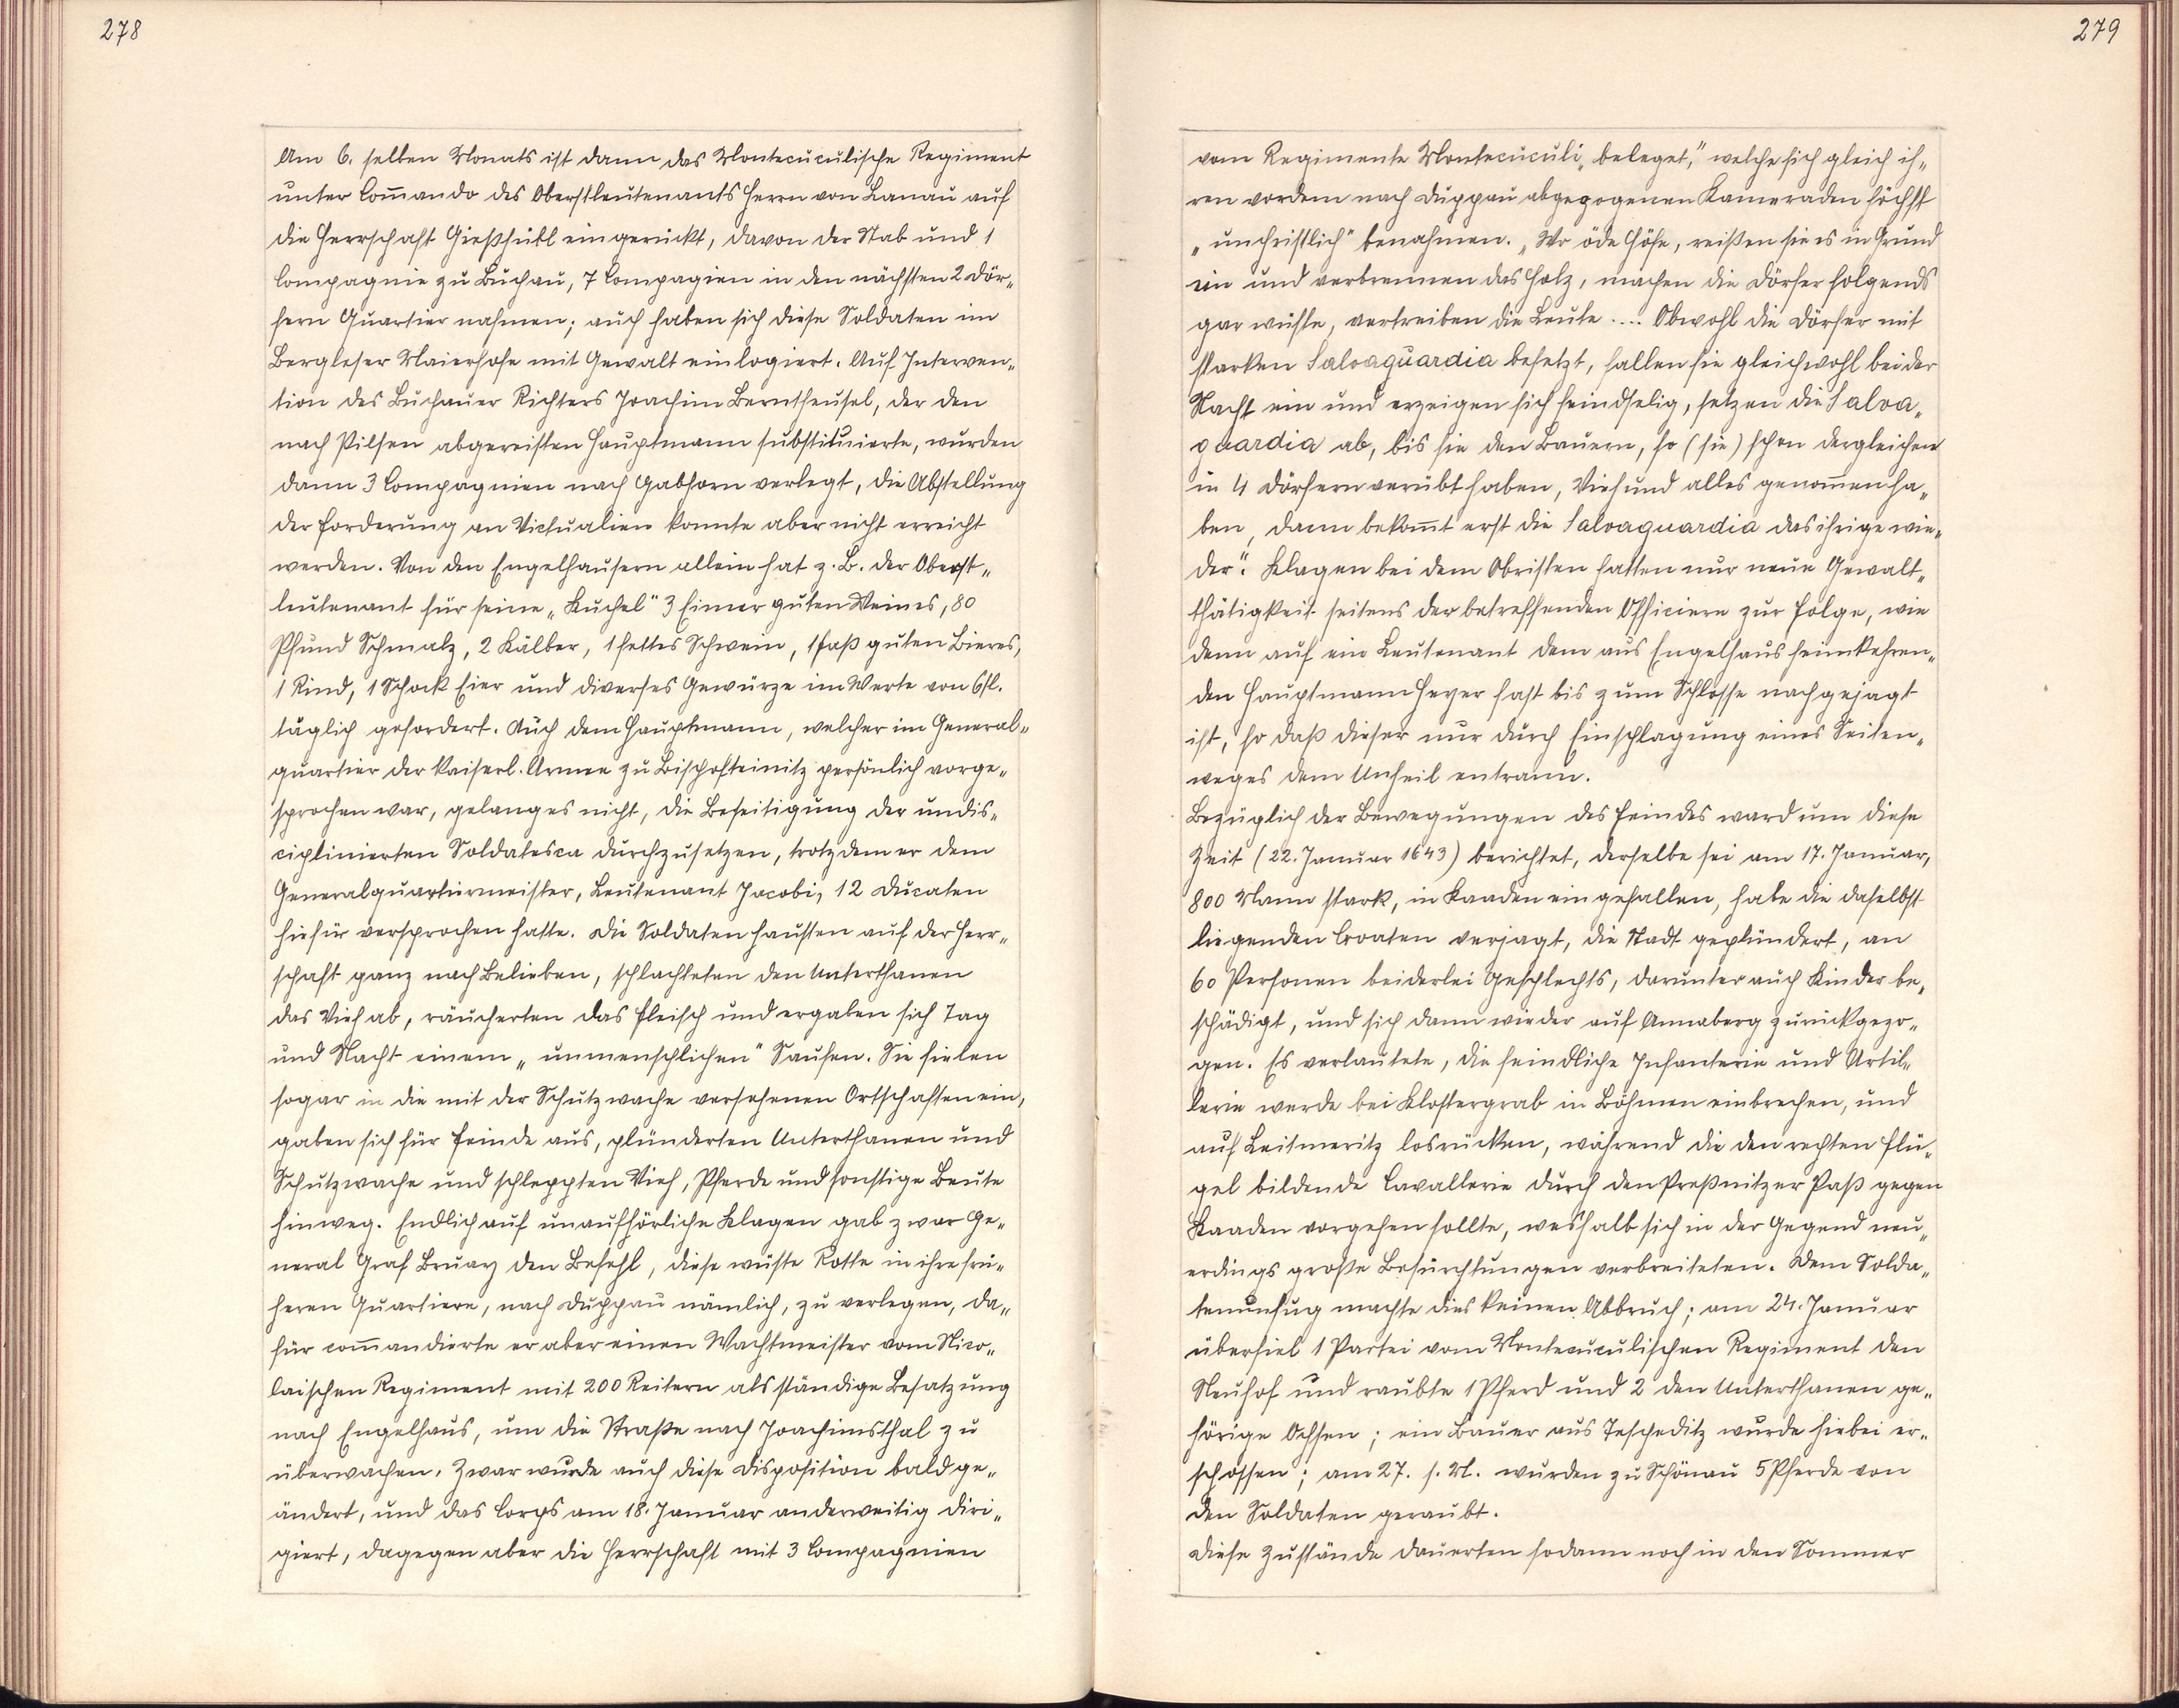 278
Am 6. selben Monats ist dann das Montecuculische Regiment
unter Com̄ando des Oberstleutenants Herrn von Lanau auf
die Herrschaft Gießhübl eingerückt, davon der Stab und 1
Compagnie zu Buchau, 7 Compagien in den nächsten 2 Dör„
fern Quartier nahmen; auch haben sich diese Soldaten im
Bergleser Maierhofe mit Gewalt einlogiert. Auf Interven„
tion des Buchauer Richters Joachim Berntheusel, der den
nach Pilsen abgereisten Hauptmann substituierte, wurden
dann 3 Compagnien nach Gabhorn verlegt, die Abstellung
der Forderung an Victualien konnte aber nicht erreicht
werden. Von den Engelhausern allein hat z. B. der Oberst„
leutenant für seine „Kuchel" 3 Eimer guten Weines, 80
Pfund Schmalz, 2 Kälber, 1 fettes Schwein, 1 Faß guten Bieres,
1 Rind, 1 Schock Eier und diverses Gewürze im Werte von 6 fl.
täglich gefordert. Auch dem Hauptmann, welcher im General„
quartier der kaiserl. Armee zu Bischofteinitz persönlich vorge„
sprochen war, gelang es nicht, die Beseitigung der undis„
ciplinierten Soldatesca durchzusetzen, trotzdem er dem
Generalquartiermeister, Leutenant Jacobi, 12 Ducaten
hiefür versprochen hatte. Die Soldaten hausten auf der Herr„
schaft ganz nach Belieben, schlachteten den Unterthanen
das Vieh ab, räucherten das Fleisch und ergaben sich Tag
und Nacht einem „unmenschlichen" Saufen. Sie fielen
sogar in die mit der Schutzwache versehenen Ortschaften ein,
gaben sich für Feinde aus, plünderten Unterthanen und
Schutzwache und schleppten Vieh, Pferde und sonstige Beute
hinweg. Endlich auf unaufhörliche Klagen gab zwar Ge„
neral Graf Bruay den Befehl, diese wüste Rotte in ihre frü„
heren Quartiere, nach Duppau nämlich, zu verlegen, da„
für com̄andierte er aber einen Wachtmeister vom Nico„
laischen Regiment mit 200 Reitern als ständige Besatzung
nach Engelhaus, um die Straße nach Joachimsthal zu
überwachen. Zwar wurde auch diese Disposition bald ge„
ändert, und das Corps am 18. Januar anderweitig diri„
giert, dagegen aber die Herrschaft mit 3 Compagnien
279
vom Regimente Montecuculi „beleget," welche sich gleich ih„
ren vordem nach Duppau abgezogenen Kameraden höchst
„unchristlich" benahmen. „Wo öde Höfe, reißen sie es in Grund
ein und verbrennen das Holz, machen die Dörfer folgends
gar wüste, vertreiben die Leute .... Obwohl die Dörfer mit
starken Salvaguardia besetzt, fallen sie gleichwohl bei der
Nacht ein und erzeigen sich feindselig, setzen die Salva„
guardia ab, bis sie den Bauern, so (sie) schon dergleichen
in 4 Dörfern verübt haben, Vieh und alles genom̄en ha„
ben, dann bekom̄t erst die Salvaguardia das ihrige wie„
der". Klagen bei dem Obristen hatten nur neue Gewalt„
thätigkeit seitens der betreffenden Officiere zur Folge, wie
denn auf ein Leutenant dem aus Engelhaus heimkehren„
den Hauptmann Heyer fast bis zum Schlosse nachgejagt
ist, so daß dieser nur durch Einschlagung eines Seiten„
weges dem Unheil entrann.
Bezüglich der Bewegungen des Feindes ward um diese
Zeit (22. Januar 1643) berichtet, derselbe sei am 17. Januar,
800 Mann stark, in Kaaden eingefallen, habe die daselbst
liegenden Croaten verjagt, die Stadt geplündert, an
60 Personen beiderlei Geschlechts, darunter auch Kinder be„
schädigt, und sich dann wieder auf Annaberg zurückgezo„
gen. Es verlautete, die feindliche Infanterie und Artil„
lerie werde bei Klostergrab in Böhmen einbrechen, und
auf Leitmeritz losrücken, während die den rechten Flü„
gel bildende Cavallerie durch den Preßnitzer Paß gegen
Kaaden vorgehen sollte, weshalb sich in der Gegend neu„
erdings große Befürchtungen verbreiteten. Dem Solda„
tenunfug machte dies keinen Abbruch; am 24. Januar
überfiel 1 Partei vom Montecuculischen Regiment den
Neuhof und raubte 1 Pferd und 2 den Unterthanen ge„
hörige Ochsen; ein Bauer aus Tescheditz wurde hiebei er„
schossen; am 27. s. M. wurden zu Schönau 5 Pferde von
den Soldaten geraubt.
Diese Zustände dauerten sodann noch in den Sommer